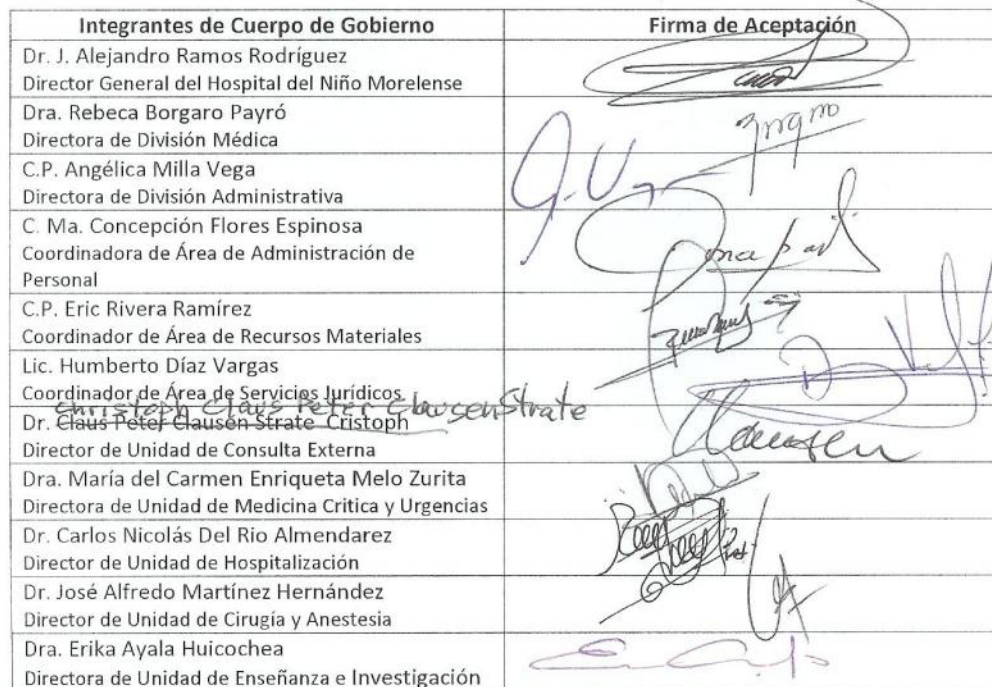 Integrantes de Cuerpo de Gobierno
Firma de Aceptación
Dr. J. Alejandro Ramos Rodríguez
Director General del Hospital del Niño Morelense
Dra. Rebeca Borgaro Payró
Directora de División Médica
C.P. Angélica Milla Vega
Directora de División Administrativa
C. Ma. Concepción Flores Espinosa
Coordinadora de Área de Administración de
Personal
C.P. Eric Rivera Ramírez
Coordinador de Área de Recursos Materiales
Lic. Humberto Díaz Vargas
Coordinador de Área de Servicios Jurídicos
Christoph Claus Peter Clausen Strate
Dr. Claus Peter Clausen Strate Cristoph
Clausen
Director de Unidad de Consulta Externa
Dra. María del Carmen Enriqueta Melo Zurita
Directora de Unidad de Medicina Critica y Urgencias
Dr. Carlos Nicolás Del Rio Almendarez
Director de Unidad de Hospitalización
Dr. José Alfredo Martínez Hernández
Director de Unidad de Cirugía y Anestesia
Dra. Erika Ayala Huicochea
Directora de Unidad de Enseñanza e Investigación